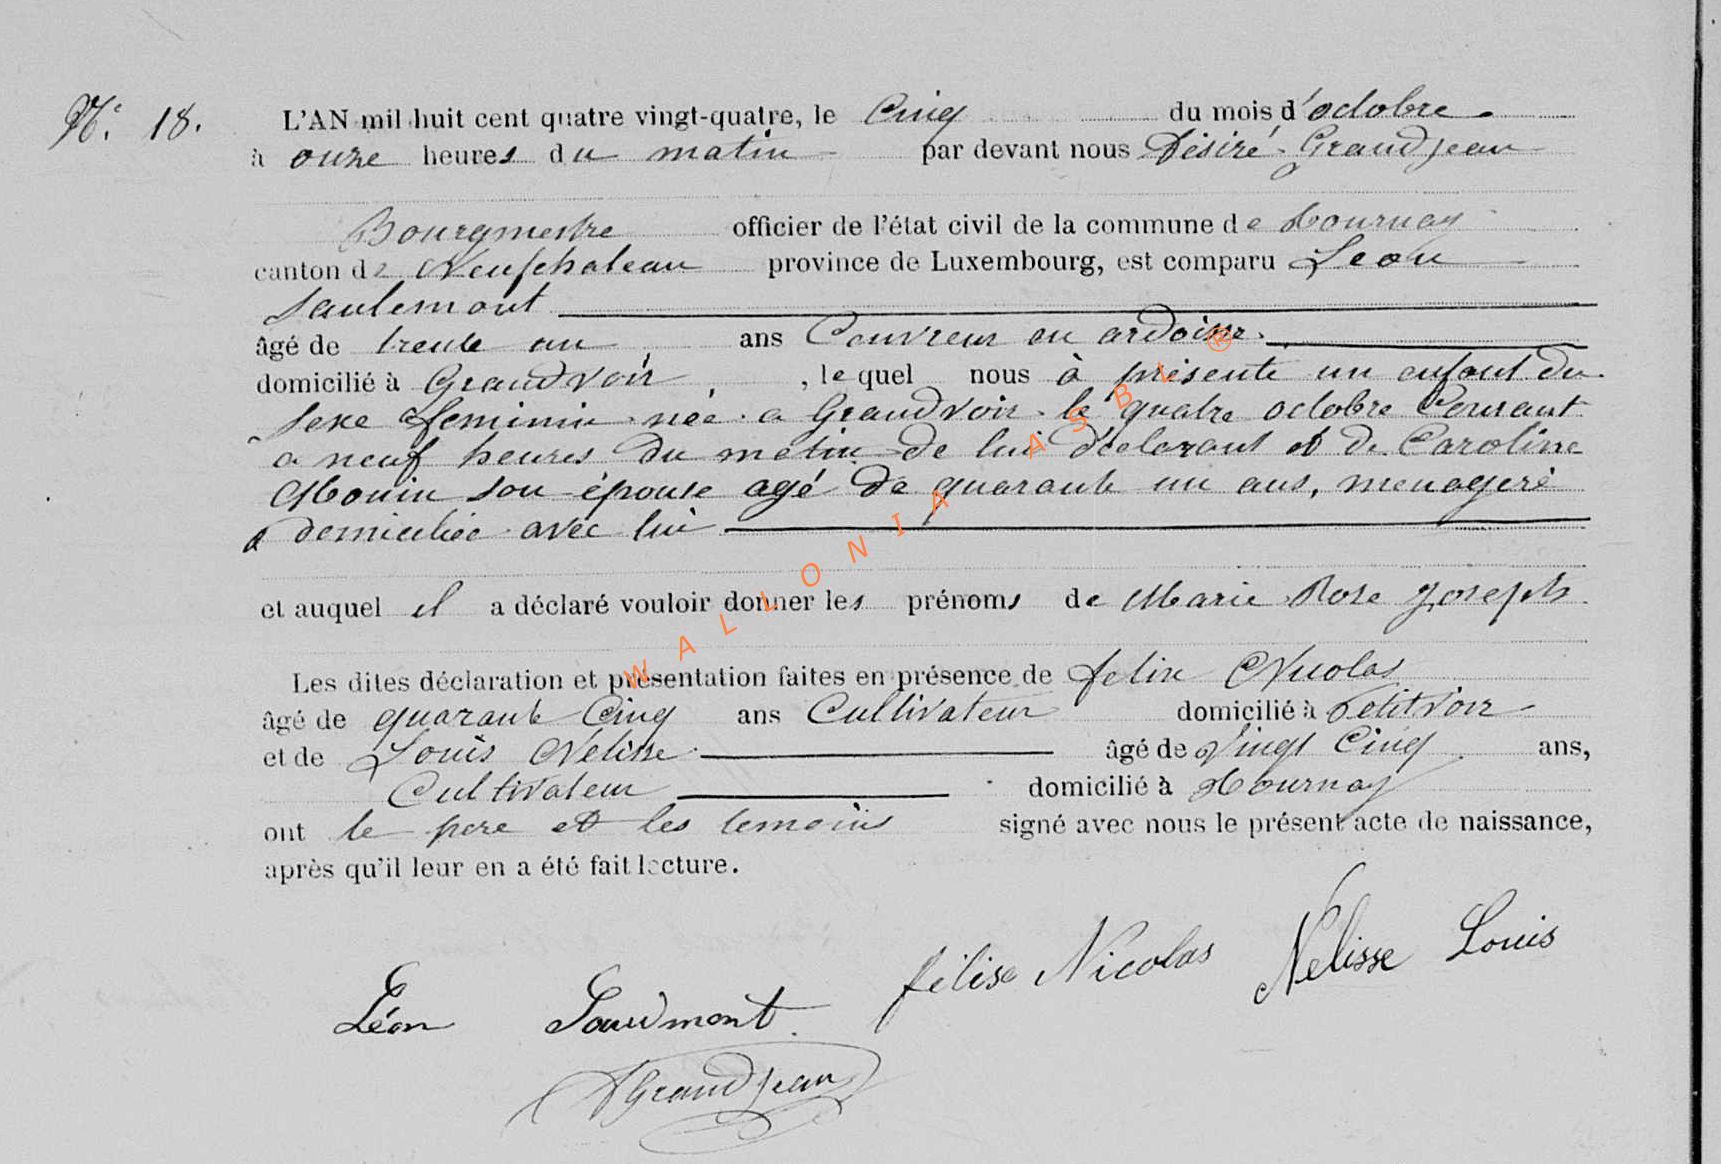 N.° 18.
L'AN mil huit cent quatre vingt-quatre, le Cinq du mois d'octobre
à onze heures du matin par devant nous Désiré Grandjean
Bourgmestre officier de l'état civil de la commune de Tournay
canton de Neufchateau province de Luxembourg, est comparu Léon
Saulemont
âgé de trente un ans Couvreur en ardoise.
domicilié à Grandvoir, lequel nous à présenté un enfant du
sexe feminin née a Grandvoir le quatre octobre Courant
a neuf heures du matin de lui déclarant et de Caroline
Monin son épouse agé de quarante un ans, menagerè
domiciliée avec lui
et auquel il a déclaré vouloir donner les prénoms de Marie Rose Joseph
Les dites déclaration et présentation faites en présence de felix Nicolas
âgé de quarante Cinq ans Cultivateur domicilié à Petitvoir
et de Louis Nelisse âgé de Vingt Cinq ans,
Cultivateur domicilié à Tournay
ont le pere et les temoins signé avec nous le présent acte de naissance,
après qu'il leur en a été fait lecture.
félix Nicolas Nélisse Louis
Léon
DGrandjean
WALLONIA ASBL ®